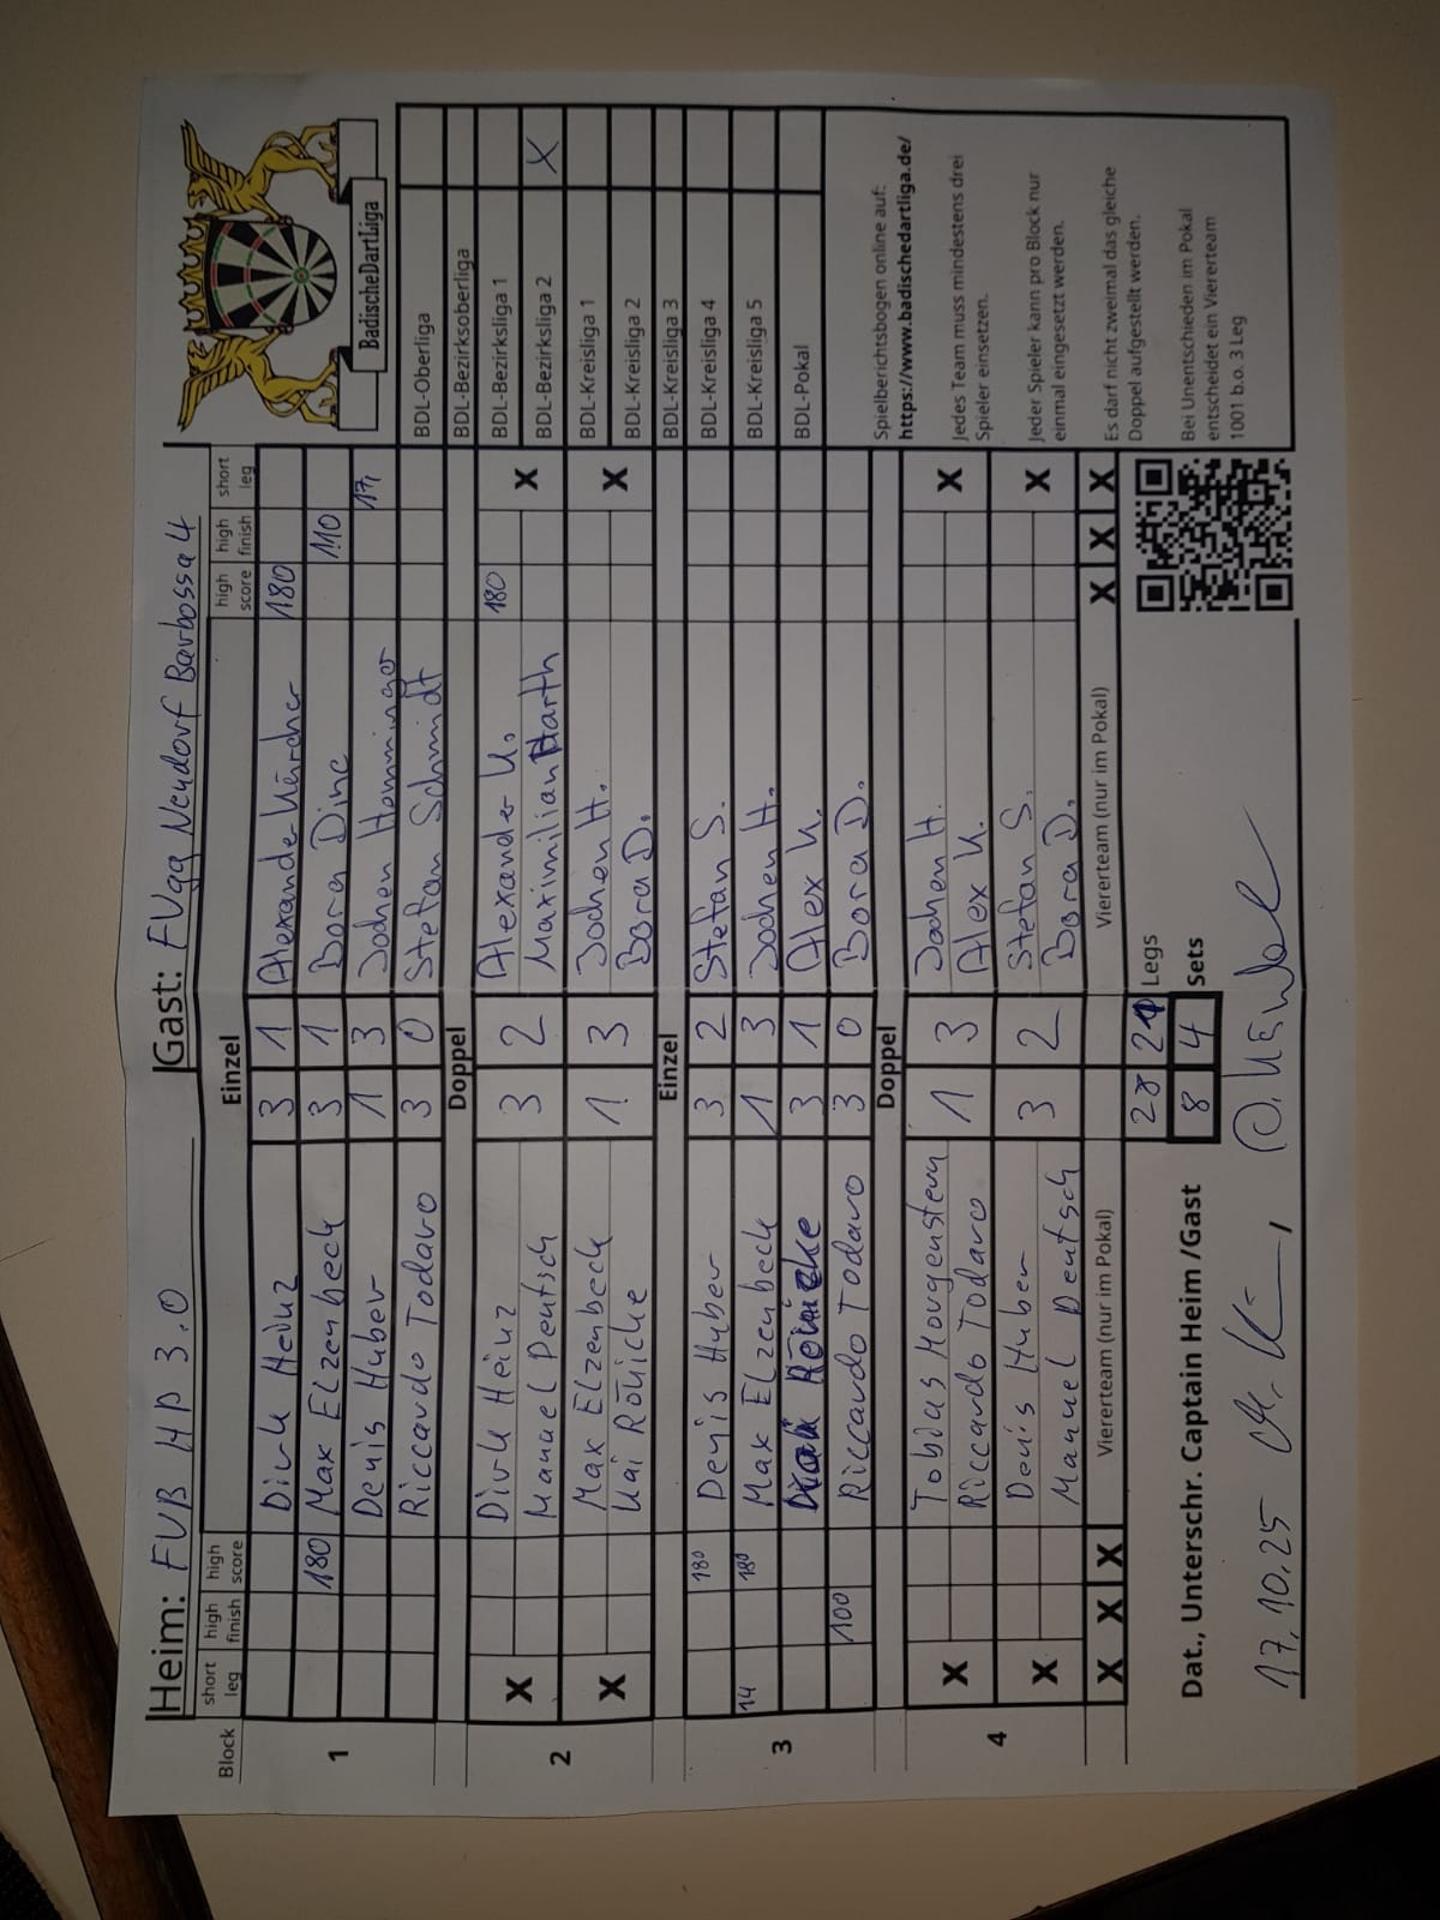 Heim: FVB HP 3.0 Gast: FVgg Neudorf Barbossa 4
BadischeDartLiga
Block short leg high finish high score Einzel high score high finish short leg
1
Dirk Heinz 3 1 Alexander Kärcher 180
180 Max Elzenbeck 3 1 Bora Dinc 110
Denis Huber 1 3 Jochen Henninger 17
Riccardo Todaro 3 0 Stefan Schmidt
Doppel
2
X Dirk Heinz 3 2 Alexander K. 180 X
Manuel Deutsch Maximilian Harth
X Max Elzenbeck 1 3 Jochen H. X
Kai Röhicke Bora D.
Einzel
3
180 Denis Huber 3 2 Stefan S.
14 180 Max Elzenbeck 1 3 Jochen H.
3 1 Alex K.
100 Riccardo Todaro 3 0 Bora D.
Doppel
4
X Tobias Morgenstern 1 3 Jochen H. X
Riccardo Todaro Alex K.
X Denis Huber 3 2 Stefan S. X
Manuel Deutsch Bora D.
X X X Viererteam (nur im Pokal) Viererteam (nur im Pokal) X X X
28 21 Legs
8 4 Sets
Dat., Unterschr. Captain Heim /Gast
17.10.25
BDL-Oberliga
BDL-Bezirksoberliga
BDL-Bezirksliga 1
BDL-Bezirksliga 2 X
BDL-Kreisliga 1
BDL-Kreisliga 2
BDL-Kreisliga 3
BDL-Kreisliga 4
BDL-Kreisliga 5
BDL-Pokal
Spielberichtsbogen online auf:
https://www.badischedartliga.de/
Jedes Team muss mindestens drei
Spieler einsetzen.
Jeder Spieler kann pro Block nur
einmal eingesetzt werden.
Es darf nicht zweimal das gleiche
Doppel aufgestellt werden.
Bei Unentschieden im Pokal
entscheidet ein Viererteam
1001 b.o. 3 Leg